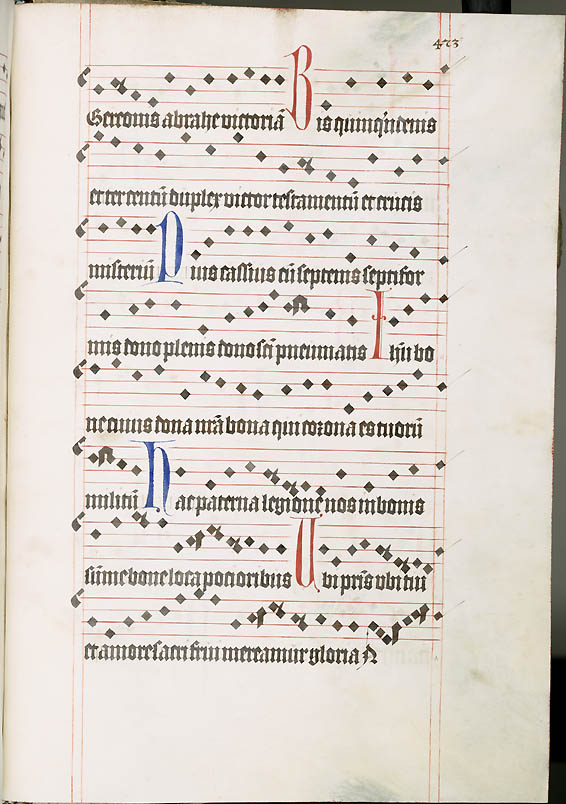 473
Gereonis abrahe victoriā Bis quinqꝫ denis
et ter centū duplex victor testamentū et crucis
misteriū Pius cassius cū septenis septifor
mis dono plenis dono sc̄i pneumatis Ihū bo
ne ciuus dona nr̄a bona qui corona es tuorū
militū Hac paterna legione nos in bonis
sūme bone loca potioribus Vbi pr̄is vbi tui
et amore sacri frui mereamur gloria